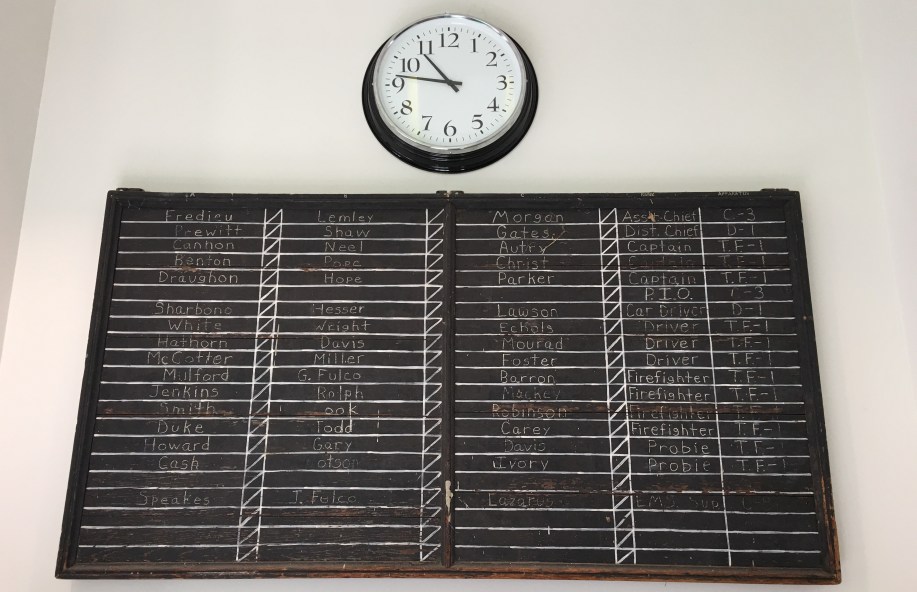 12
11 1
10 2
9 3
8 4
7 5
6
A B C RANK APPARATUS
Fredieu Lemley Morgan Asst. Chief C-3
Prewitt Shaw Gates Dist. Chief D-1
Cannon Neel Autry Captain T.F-1
Kenton Pope Christ Captain T.F-1
Draughon Hope Parker Captain T.F-1
P.I.O. -3
Sharbono Hesser Lawson Car Driver D-1
White Wright Echols Driver T.F-1
Hathorn Davis Mourad Driver T.F-1
McCotter Miller Foster Driver T.F-1
Mulford G. Fulco Barron Firefighter T.F-1
Jenkins Rolph Mackey Firefighter T.F-1
Smith ook Robinson Firefighter T.F-
Duke Todd Carey Firefighter T.F-1
Howard Gary Davis Probie T.F-
Cash otson Ivory Probie T.F-1
Speakes J. Fulco Lazarus EMS Sup